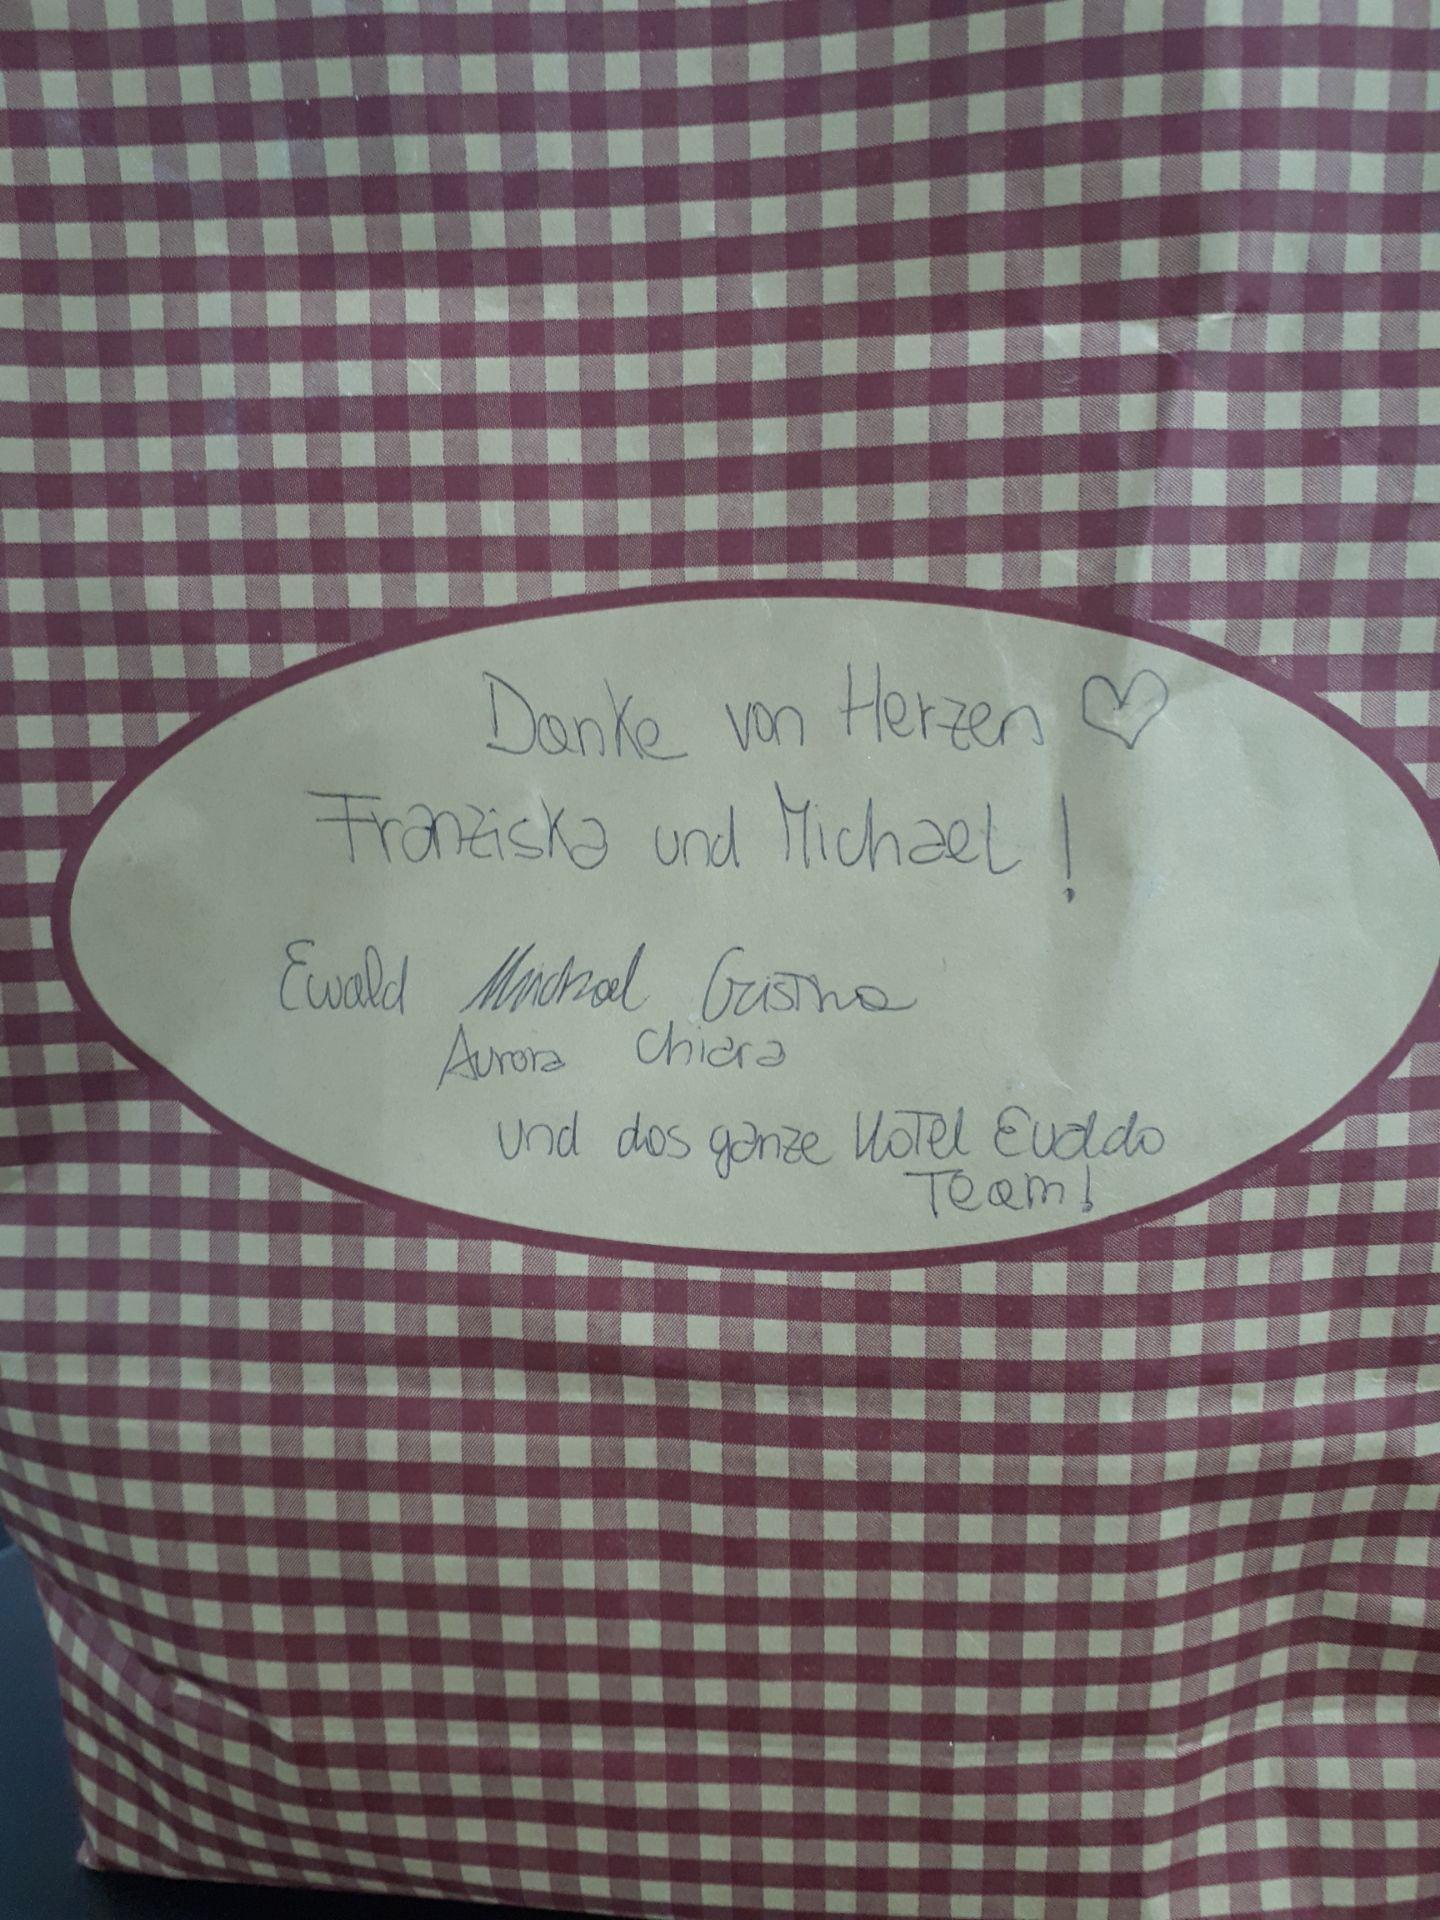 Danke von Herzen ♡
Franziska und Michael!
Ewald Michael Cristina
Aurora Chiara
und das ganze Hotel Evaldo
Team!